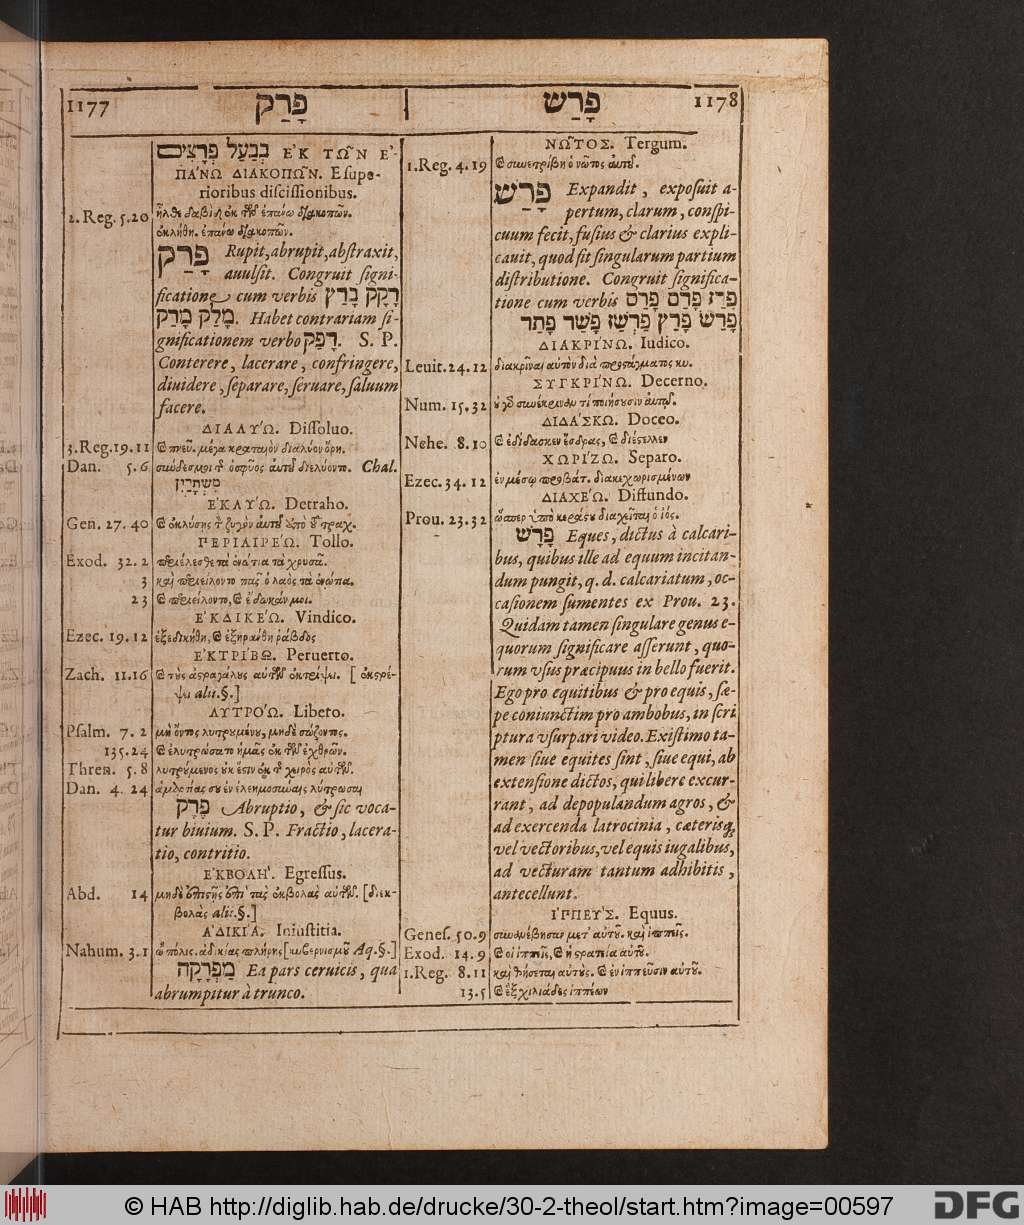 1177 פָּרַק
פָּרַשׁ 1178
בְּבַעַל פְּרָצִים ἘΚ ΤΩ͂Ν Ἐ-
ΠΆΝΩ ΔΙΑΚΟΠΩ͂Ν. E supe-
rioribus discissionibus.
2. Reg. 5.20 ἦλθε δαβὶδ ἐκ τῶν ἐπάνω διακοπῶν.
ἐκλήθη. ἐπάνω διακοπῶν.
פָּרַק Rupit, abrupit, abstraxit,
auulsit. Congruit signi-
ficatione cum verbis
. Habet contrariam si-
gnificationem verbo דָּפַק. S. P.
Conterere, lacerare, confringere,
diuidere, separare, seruare, saluum
facere.
ΔΙΑΛΎΩ. Dissoluo.
3. Reg. 19.11 καὶ πνεῦ. μέγα κραταιὸν διαλύον ὄρη.
Dan. 5.6 σύνδεσμοι τ ὀσφύος αὐτοῦ διελύοντο. Chal.
ἘΚΛΎΩ. Detraho.
Gen. 27.40 καὶ ἐκλύσῃς τ ζυγὸν αὐτοῦ ἀπὸ τοῦ τραχ.
ΠΕΡΙΑΙΡΈΩ. Tollo.
Exod. 32.2 περιέλεσθε τὰ ἐνώτια τὰ χρυσᾶ.
3 καὶ περιείλοντο πᾶς ὁ λαὸς τὰ ἐνώτια.
23 καὶ περιείλοντο, καὶ ἔδωκάν μοι.
ἘΚΔΙΚΈΩ. Vindico.
Ezec. 19.12 ἐξεδικήθη, καὶ ἐξηράνθη ῥάβδος
ἘΚΤΡΊΒΩ. Peruerto.
Zach. 11.16 καὶ τοὺς ἀστραγάλους αὐτῶν ἐκτρίψει. [ ἐκστρέ-
ψει alii.§.]
ΛΥΤΡΌΩ. Libero.
Psalm. 7.2 μὴ ὄντος λυτρουμένου, μηδὲ σώζοντος.
135.24 καὶ ἐλυτρώσατο ἡμᾶς ἐκ τῶν ἐχθρῶν.
Thren. 5.8 λυτρούμενος οὐκ ἔστιν ἐκ τ χειρὸς αὐτῶν.
Dan. 4.24 ἁμαρτίας σου ἐν ἐλεημοσύναις λύτρωσαι
פֶּרֶק Abruptio, & sic voca-
tur biuium. S. P. Fractio, lacera-
tio, contritio.
ἘΚΒΟΛΉ. Egressus.
Abd. 14 μηδὲ ἐπιστῇς ἐπὶ τὰς ἐκβολὰς αὐτῶν. [διεκ-
βολὰς alii.§.]
ἈΔΙΚΊΑ. Iniustitia.
Nahum. 3.1 ὦ πόλις. ἀδικίας πλήρης Aq.§.]
מַפְרָקָה Ea pars ceruicis, qua
abrumpitur à trunco.
ΝΩ͂ΤΟΣ. Tergum.
1. Reg. 4.19 καὶ συνετρίβη ὁ νῶτος αὐτοῦ.
פָּרַשׁ Expandit, exposuit a-
pertum, clarum, conspi-
cuum fecit, fusius & clarius expli-
cauit, quod fit singularum partium
distributione. Congruit significa-
tione cum verbis פָּרַז פָּרַם פָּרַס
פָּרַשׂ פָּרַץ פַּרְשֵׁז פָּשַׁר פָּתַר
ΔΙΑΚΡΊΝΩ. Iudico.
Leuit. 24.12 διακρῖναι αὐτὸν διὰ προστάγματος κυ.
ΣΥΓΚΡΊΝΩ. Decerno.
Num. 15.32 οὐ γὸ συνέκριναν τί ποιήσουσιν αὐτῷ.
ΔΙΔΆΣΚΩ. Doceo.
Nehe. 8.10 καὶ ἐδίδασκεν ἔσδρας, καὶ διέστελλεν
ΧΩΡΊΖΩ. Separo.
Ezec. 34.12 ἐν μέσῳ προβάτ. διακεχωρισμένων
ΔΙΑΧΈΩ. Diffundo.
Prou. 23.32 ὥσπερ ὑπὸ κεράστου διαχεῖται ὁ ἰός.
פָּרָשׁ Eques, dictus à calcari-
bus, quibus ille ad equum incitan-
dum pungit, q. d. calcariatum, oc-
casionem sumentes ex Prou. 23.
Quidam tamen singulare genus e-
quorum significare asserunt, quo-
rum vsus præcipuus in bello fuerit.
Ego pro equitibus & pro equis, sæ-
pe coniunctim pro ambobus, in scri
ptura vsurpari video. Existimo ta-
men siue equites sint, siue equi, ab
extensione dictos, qui libere excur-
rant, ad depopulandum agros, &
ad exercenda latrocinia, cæterisq́,
vel vectoribus, vel equis iugalibus,
ad vecturam tantum adhibitis,
antecellunt.
ἹΠΠΕΎΣ. Equus.
Genes. 50.9 συνανέβησαν μετ᾽ αὐτοῦ. καὶ ἱππεῖς.
Exod. 14.9 καὶ οἱ ἱππεῖς, καὶ ἡ στρατιὰ αὐτοῦ.
1. Reg. 8.11 καὶ θήσεται αὐτοὺς. καὶ ἐν ἱππεῦσιν αὐτοῦ.
13.5 καὶ ἓξ χιλιάδες ἱππέων
© HAB http://diglib.hab.de/drucke/30-2-theol/start.htm?image=00597
DFG